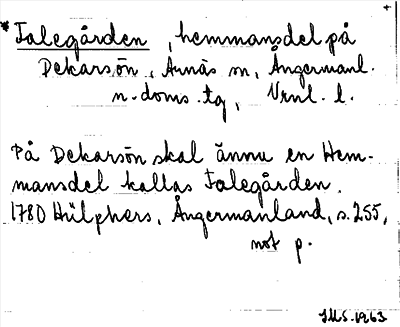 *Falegården, hemmansdel på
Dekarsön, Arnäs sn, Ångermanl.
n. doms. tg, Vrnl. l.
På Dekarsön skal ännu en Hem-
mansdel kallas Falegården.
1780 Hülphers, Ångermanland, s. 255,
not p.
IMS. 1963